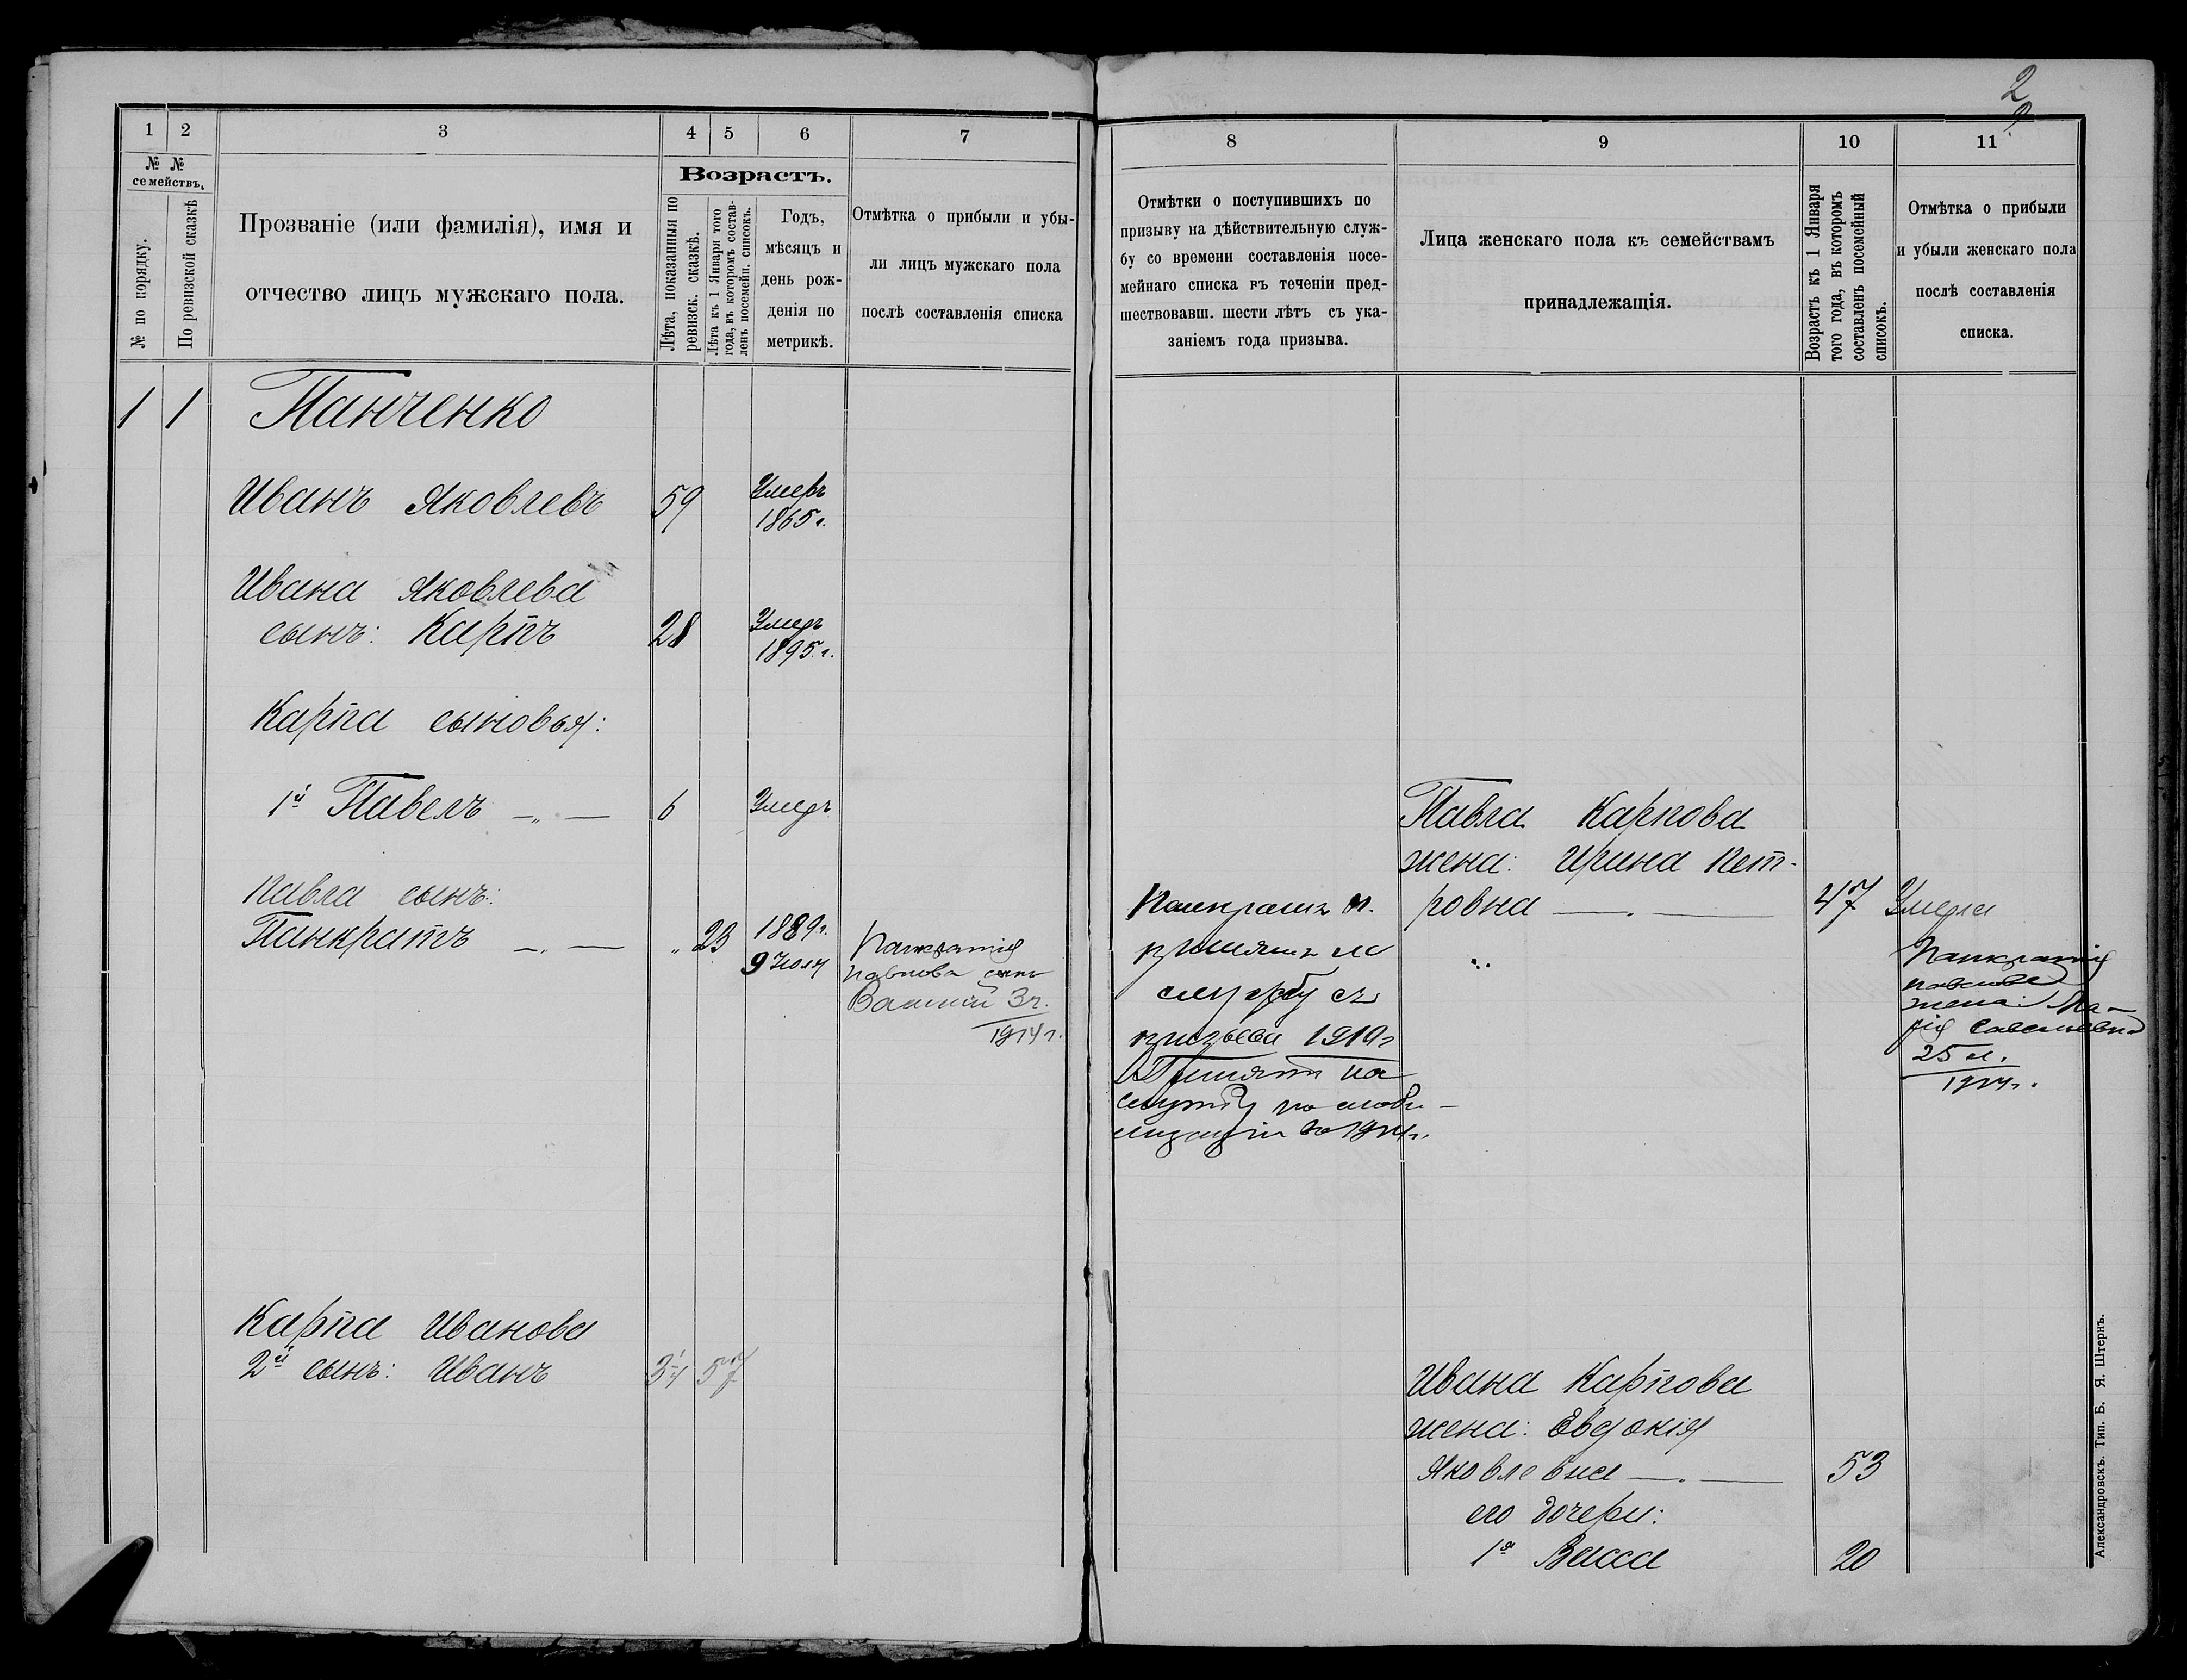 2
1 2 3 4 5 6 7
№ № семействъ.
№ по порядку.
По ревизской сказкѣ
Прозваніе (или фамилія), имя и
отчество лицъ мужскаго пола.
Возрастъ.
Лѣта, показанныя по
ревизск. сказкѣ.
Лѣта къ 1 Января того
года, въ которомъ состав-
ленъ посемейн. списокъ.
Годъ,
мѣсяцъ и
день рож-
денія по
метрикѣ.
Отмѣтка о прибыли и убы-
ли лицъ мужскаго пола
послѣ составленія списка
1 1 Панченко
Иванъ Яковлевъ 59 Умеръ
1865 г.
Ивана Яковлева
сынъ: Карпъ 28 Умеръ
1895 г.
Карпа сыновья:
1й Павелъ 6 Умеръ
Павла сынъ:
Панкратъ " 23 1889 г.
9 Іюля
Панкратія
Павлова сынъ
Василій 3 г.
1914 г.
Карпа Иванова
2й сынъ: Иванъ 57
8 9 10 11
Отмѣтки о поступившихъ по
призыву на дѣйствительную служ-
бу со времени составленія посе-
мейнаго списка въ теченіи пред-
шествовавш. шести лѣтъ съ ука-
заніемъ года призыва.
Лица женскаго пола къ семействамъ
принадлежащія.
Возрастъ къ 1 Января
того года, въ которомъ
составленъ посемейный
списокъ.
Отмѣтка о прибыли
и убыли женскаго пола
послѣ составленія
списка.
Панкратъ П.
принятъ на
службу съ
призыва 1910 г
Принятъ на
службу по моби-
лизаціи въ 1914 г.
Павла Карпова
жена: Ирина Пет-
ровна 47 Умерла
Панкратія
Павлова
жена: Ма-
рія Савельевна
25 л.
1914 г.
Ивана Карпова
жена: Евдокія
Яковлевна 53
его дочери:
1я Васса 20
Александровскъ. Тип. Б. Я. Штернъ.